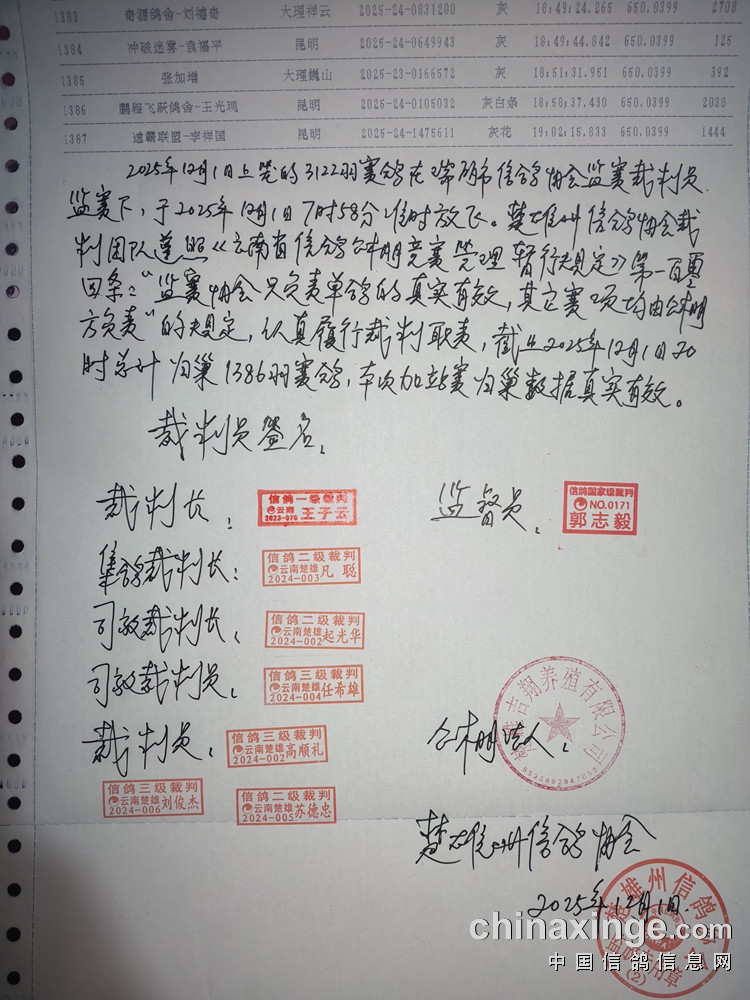 1383 奇源鸽舍-刘德奇 大理祥云 2025-24-0831200 灰 18:49:24.265 650.0399 2708
1384 冲破迷雾-袁福平 昆明 2025-24-0649943 灰 18:49:44.842 650.0399 125
1385 张加增 大理巍山 2025-23-0166572 灰 18:51:31.951 650.0399 392
1386 鹏程飞跃鸽舍-王光现 昆明 2025-24-0105032 灰白条 18:58:37.430 650.0399 2038
1387 速霸联盟-李祥国 昆明 2025-24-1475611 灰花 19:02:15.833 650.0399 1444
2025年12月1日上笼的3122羽赛鸽在 常胡市信鸽协会监赛裁判员
监赛下,于2025年12月1日7时58分准时放飞。楚雄州信鸽协会裁
判团队遵照《云南省信鸽公棚竞赛管理暂行规定》第一百零
四条:"监赛协会只负责单鸽的真实有效,其它赛项均由公棚
方负责"的规定,认真履行裁判职责,截止2025年12月1日20
时总计归巢1386羽赛鸽,本次加站赛归巢数据真实有效。
裁判员签名:
裁判长: 信鸽一级裁判 云南 2023-070 王子云 监督员: 信鸽国家级裁判 NO.0171 郭志毅
集鸽裁判长: 信鸽二级裁判 云南楚雄 2024-003 凡聪
司放裁判长: 信鸽二级裁判 云南楚雄 2024-002 起光华
司放裁判员: 信鸽三级裁判 云南楚雄 2024-004 任希雄
裁判员: 信鸽三级裁判 云南楚雄 2024-002 高顺礼 公棚法人: 吉翔养殖有限公司
信鸽三级裁判 云南楚雄 2024-006 刘俊杰 信鸽二级裁判 云南楚雄 2024-005 苏德忠
楚雄州信鸽协会
2025年12月1日
楚雄州信鸽协会
(2)
chinaxinge.com
中国信鸽信息网